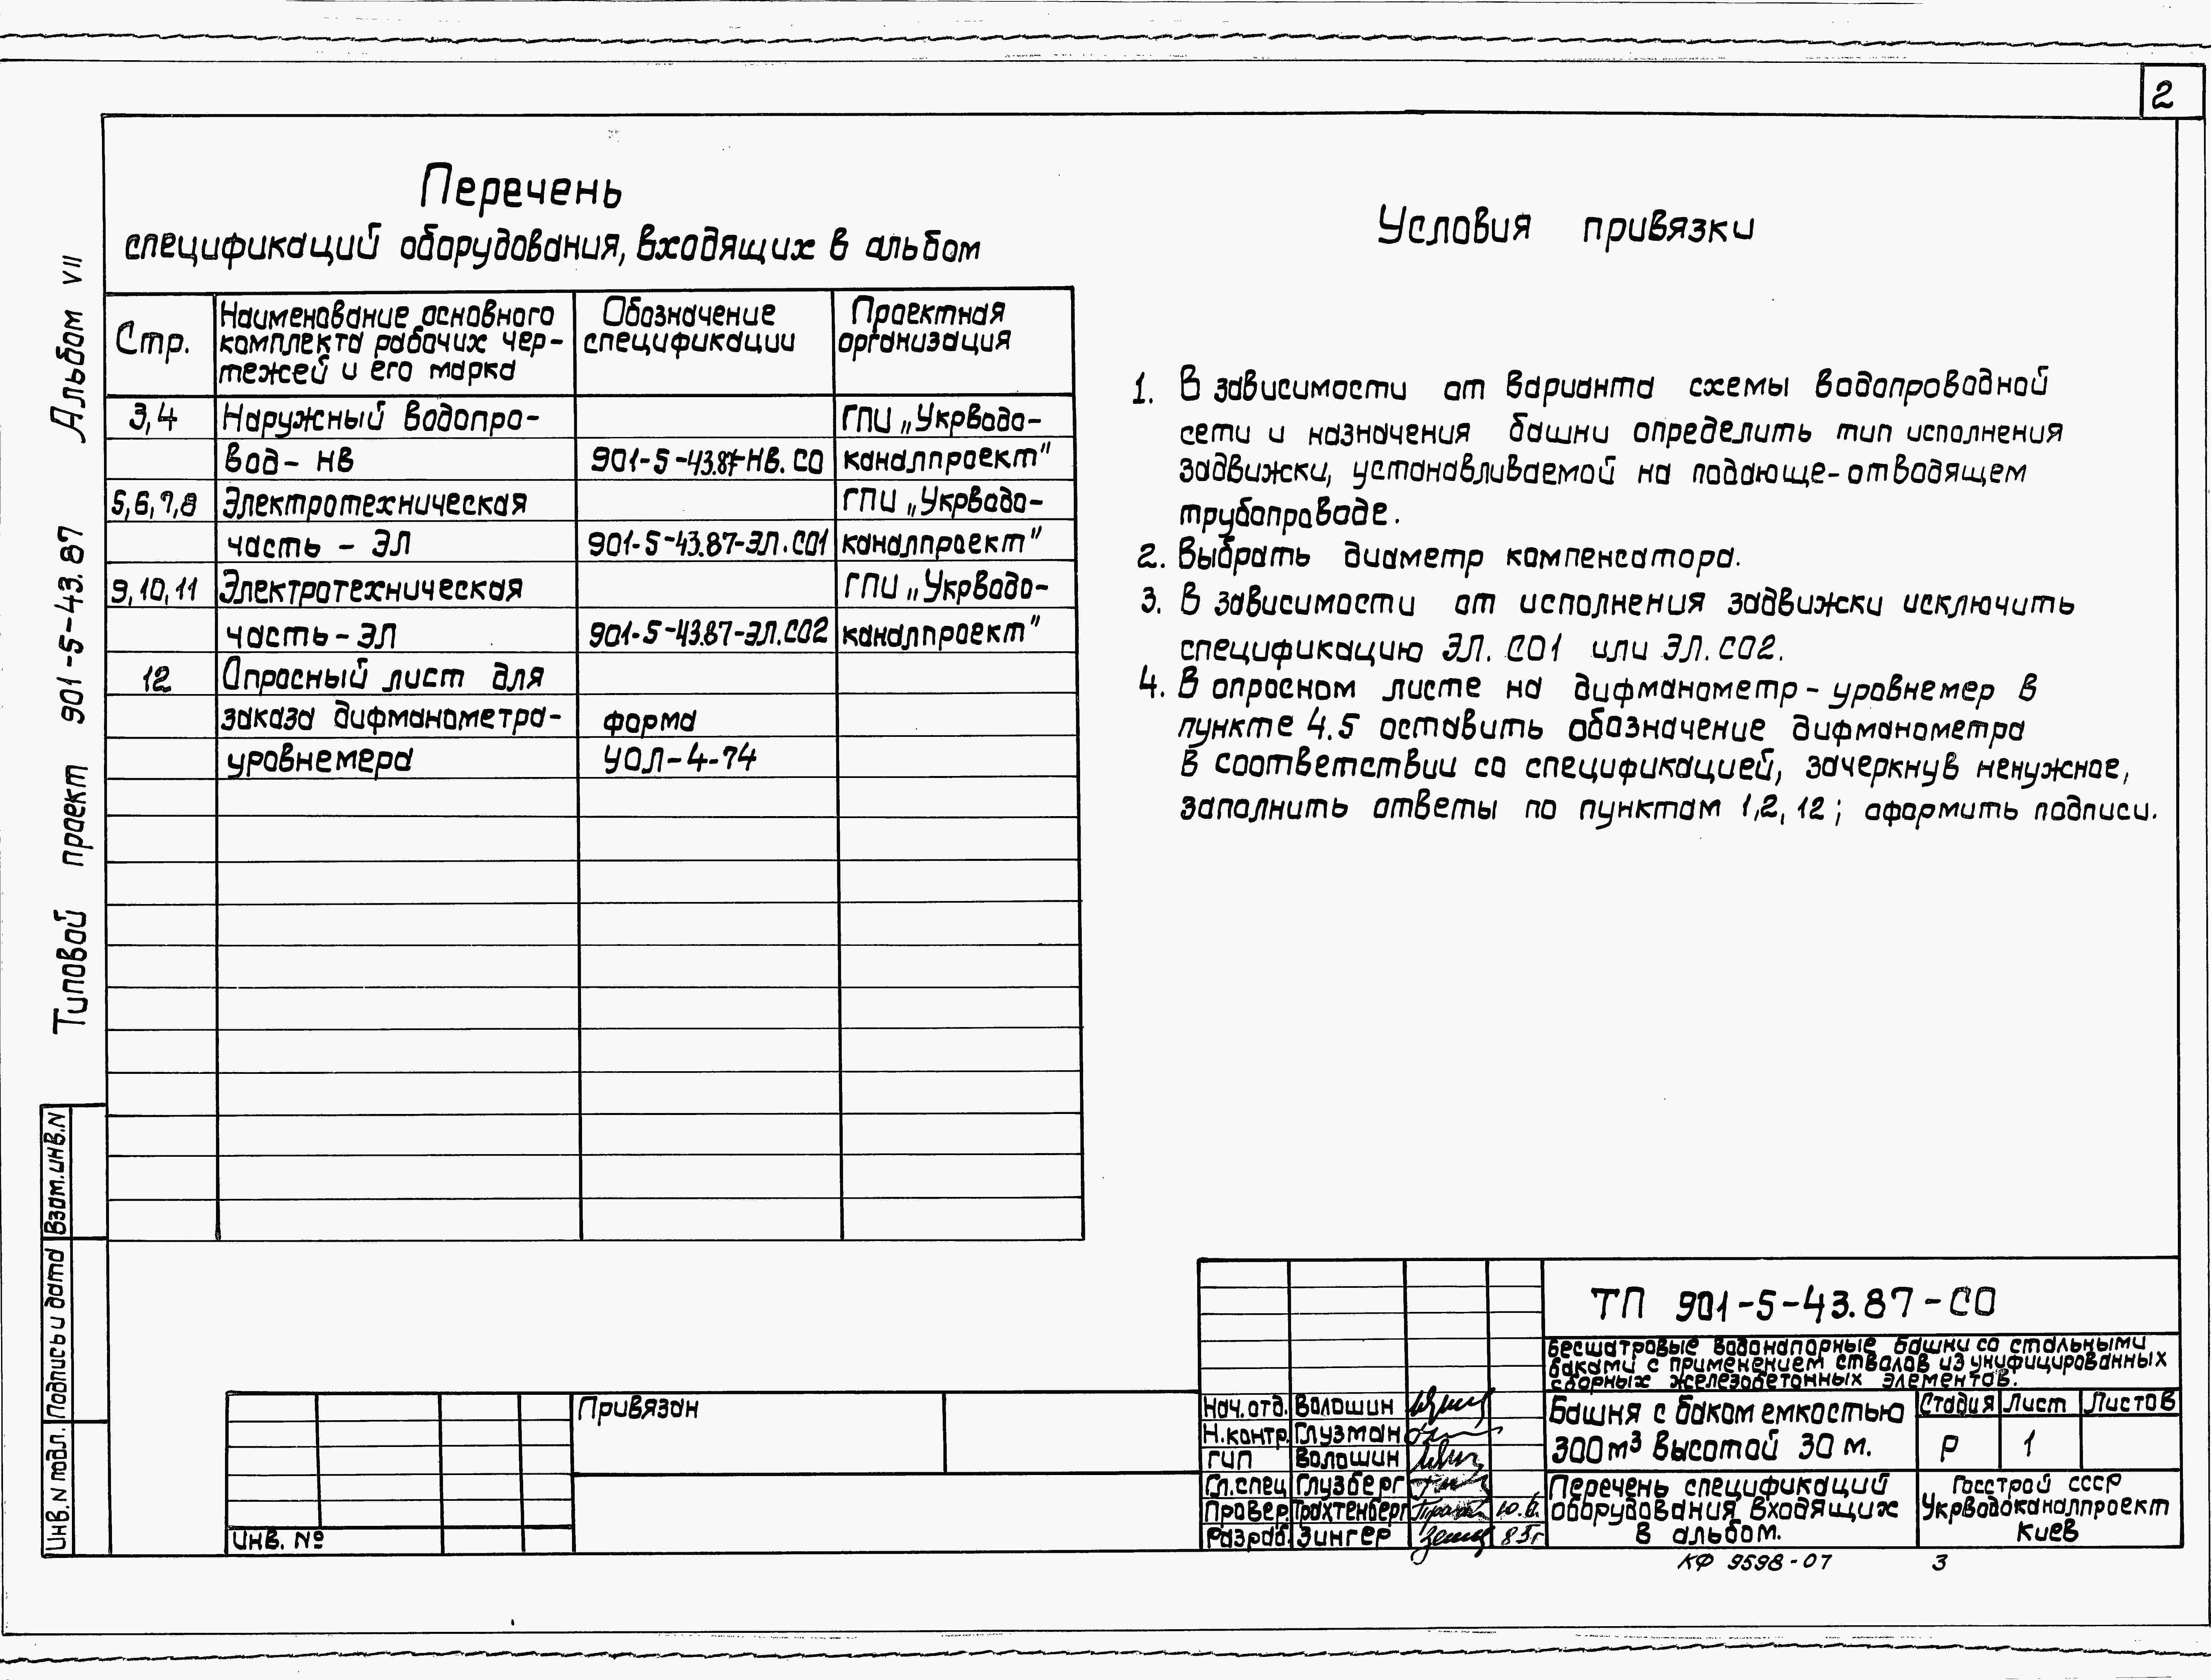 2
Перечень
спецификаций оборудования, входящих в альбом
Стр.
Наименование основного
комплекта рабочих чер-
тежей и его марка
Обозначение
спецификации
Проектная
организация
3,4 Наружный водопро- ГПИ „Укрводо-
вод - НВ 901-5-43.87-НВ.СО каналпроект"
5,6,7,8 Электротехническая ГПИ „Укрводо-
часть - ЭЛ 901-5-43.87-ЭЛ.СО1 каналпроект"
9,10,11 Электротехническая ГПИ „Укрводо-
часть - ЭЛ 901-5-43.87-ЭЛ.СО2 каналпроект"
12 Опросный лист для
заказа дифманометра- форма
уровнемера УОЛ-4-74
Условия привязки
1. В зависимости от варианта схемы водопроводной
сети и назначения башни определить тип исполнения
задвижки, устанавливаемой на подающе-отводящем
трубопроводе.
2. Выбрать диаметр компенсатора.
3. В зависимости от исполнения задвижки исключить
спецификацию ЭЛ.СО1 или ЭЛ.СО2.
4. В опросном листе на дифманометр-уровнемер в
пункте 4.5 оставить обозначение дифманометра
в соответствии со спецификацией, зачеркнув ненужное,
заполнить ответы по пунктам 1,2,12; оформить подписи.
Типовой проект 901-5-43.87 Альбом VII
Инв. N подл. Подпись и дата Взам.инв.N
Привязан
Инв. №
ТП 901-5-43.87-СО
Бесшатровые водонапорные башни со стальными
баками с применением стволов из унифицированных
сборных железобетонных элементов.
Нач.отд. Волошин
Н.контр. Глузман
ГИП Волошин
Гл.спец Глузберг
Провер. Трахтенберг
Разраб. Зингер
Башня с баком емкостью
300 м³ высотой 30 м.
Стадия Лист Листов
Р 1
Перечень спецификаций
оборудования, входящих
в альбом.
Госстрой СССР
Укрводоканалпроект
Киев
КФ 9598-07 3